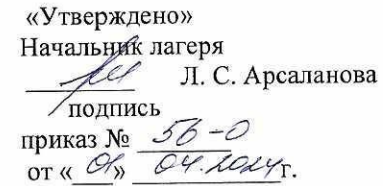 «Утверждено»
Начальник лагеря
Л. С. Арсаланова
подпись
приказ № 56-О
от « 01 » 04.2024г.